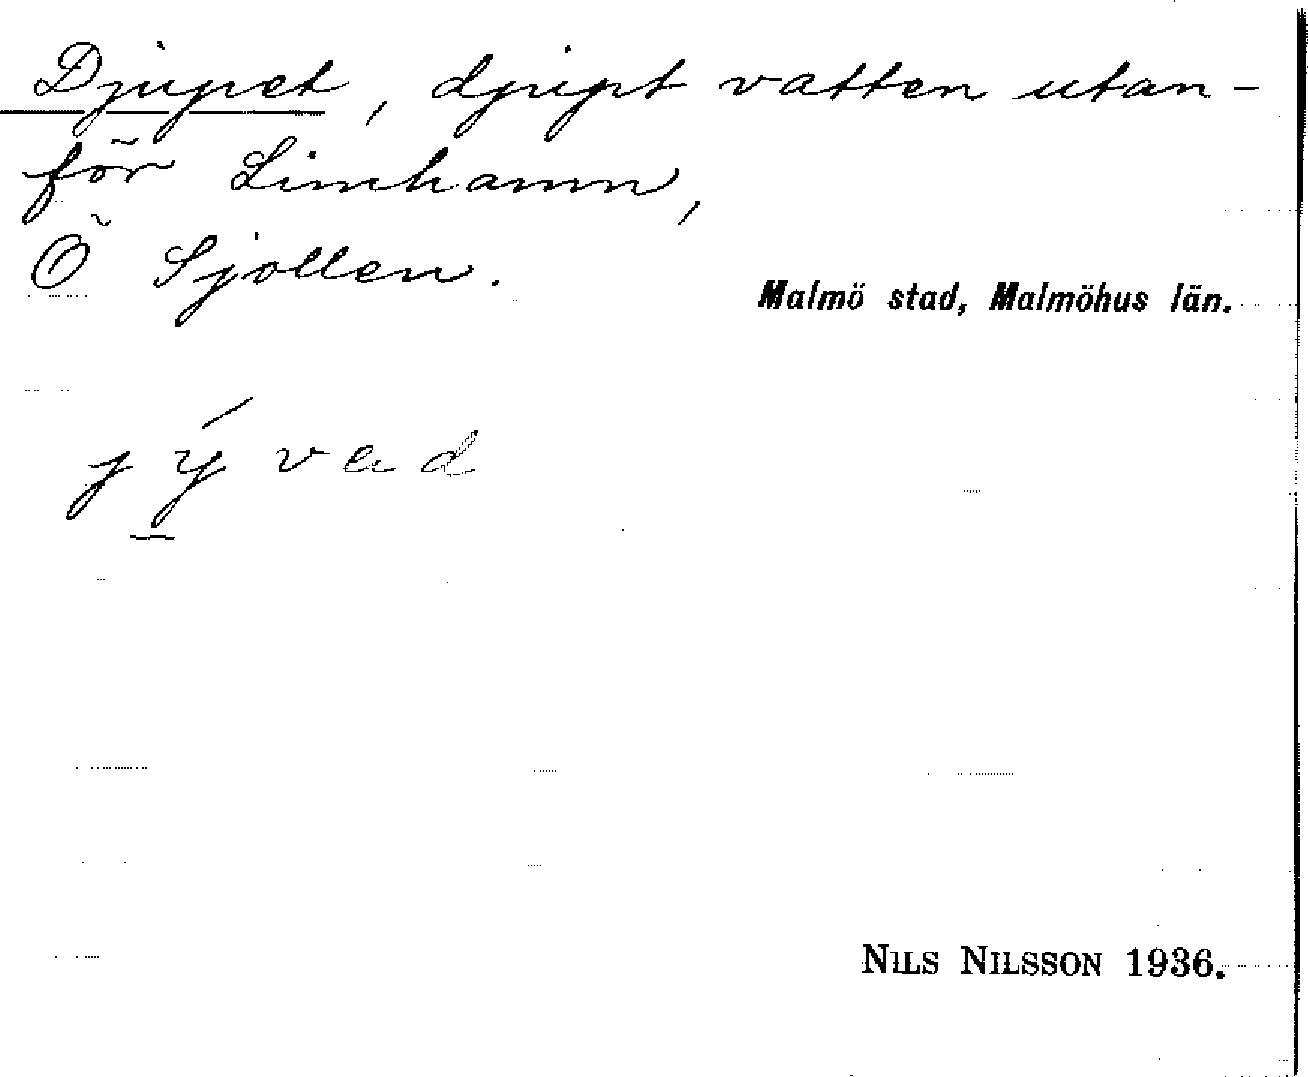 Djupet, djupt vatten utan-
för Limhamn,
Ö Sjollen.
Malmö stad, Malmöhus län.
NILS NILSSON 1936.